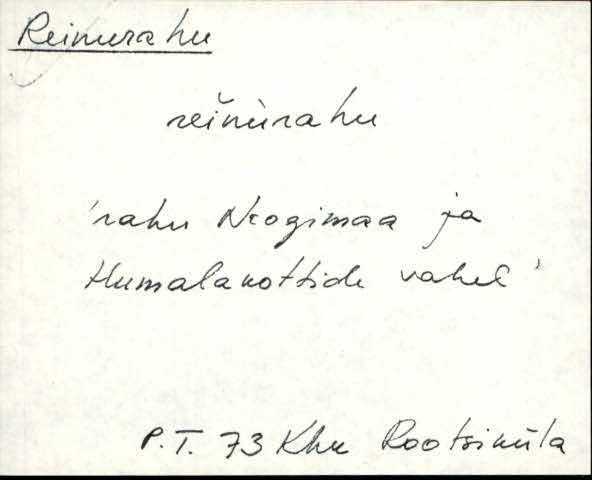 Reinurahu
reinurahu
'rahu Noogimaa ja
Humalakottide vahel'
P.T. 73 Khu Rootsiküla